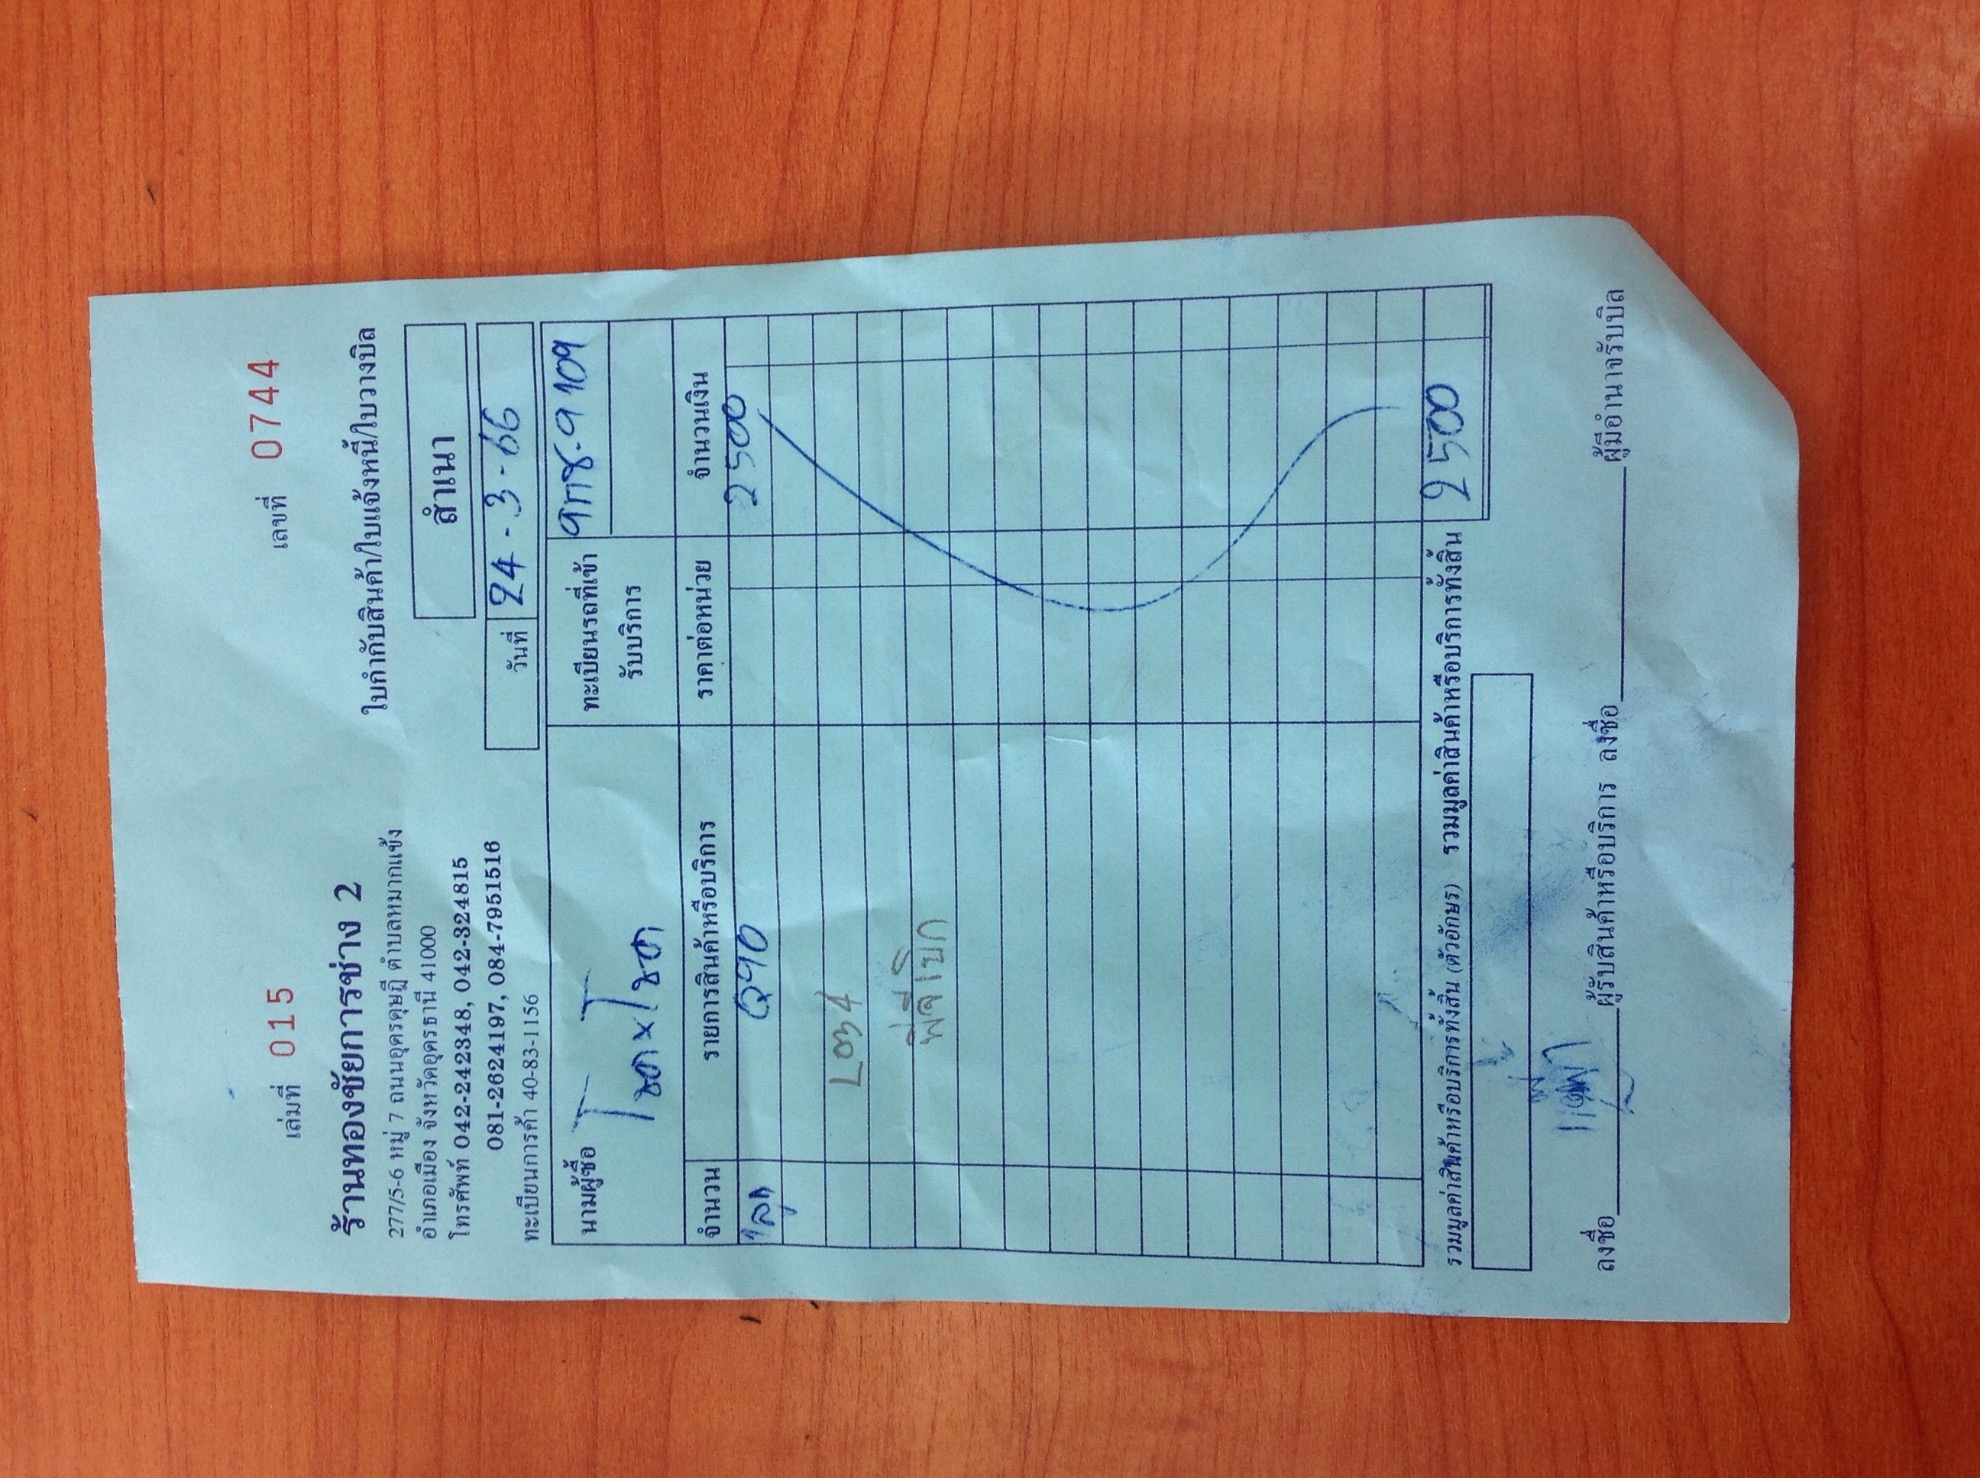 เล่มที่ 015 เลขที่ 0744
ร้านทองชัยการช่าง 2
ใบกำกับสินค้า/ใบแจ้งหนี้/ใบวางบิล
277/5-6 หมู่ 7 ถนนอุดรดุษฎี ตำบลหมากแข้ง
อำเภอเมือง จังหวัดอุดรธานี 41000
สำเนา
โทรศัพท์ 042-242348, 042-324815
081-2624197, 084-7951516
วันที่ 24-3-66
ทะเบียนการค้า 40-83-1156
นามผู้ซื้อ
ทะเบียนรถที่เข้ารับบริการ
จำนวน รายการสินค้าหรือบริการ ราคาต่อหน่วย จำนวนเงิน
1ลูก 2500
L034
พี่สีเบิก
รวมมูลค่าสินค้าหรือบริการทั้งสิ้น (ตัวอักษร) รวมมูลค่าสินค้าหรือบริการทั้งสิ้น 2500
ลงชื่อ ผู้รับสินค้าหรือบริการ ลงชื่อ ผู้มีอำนาจรับบิล